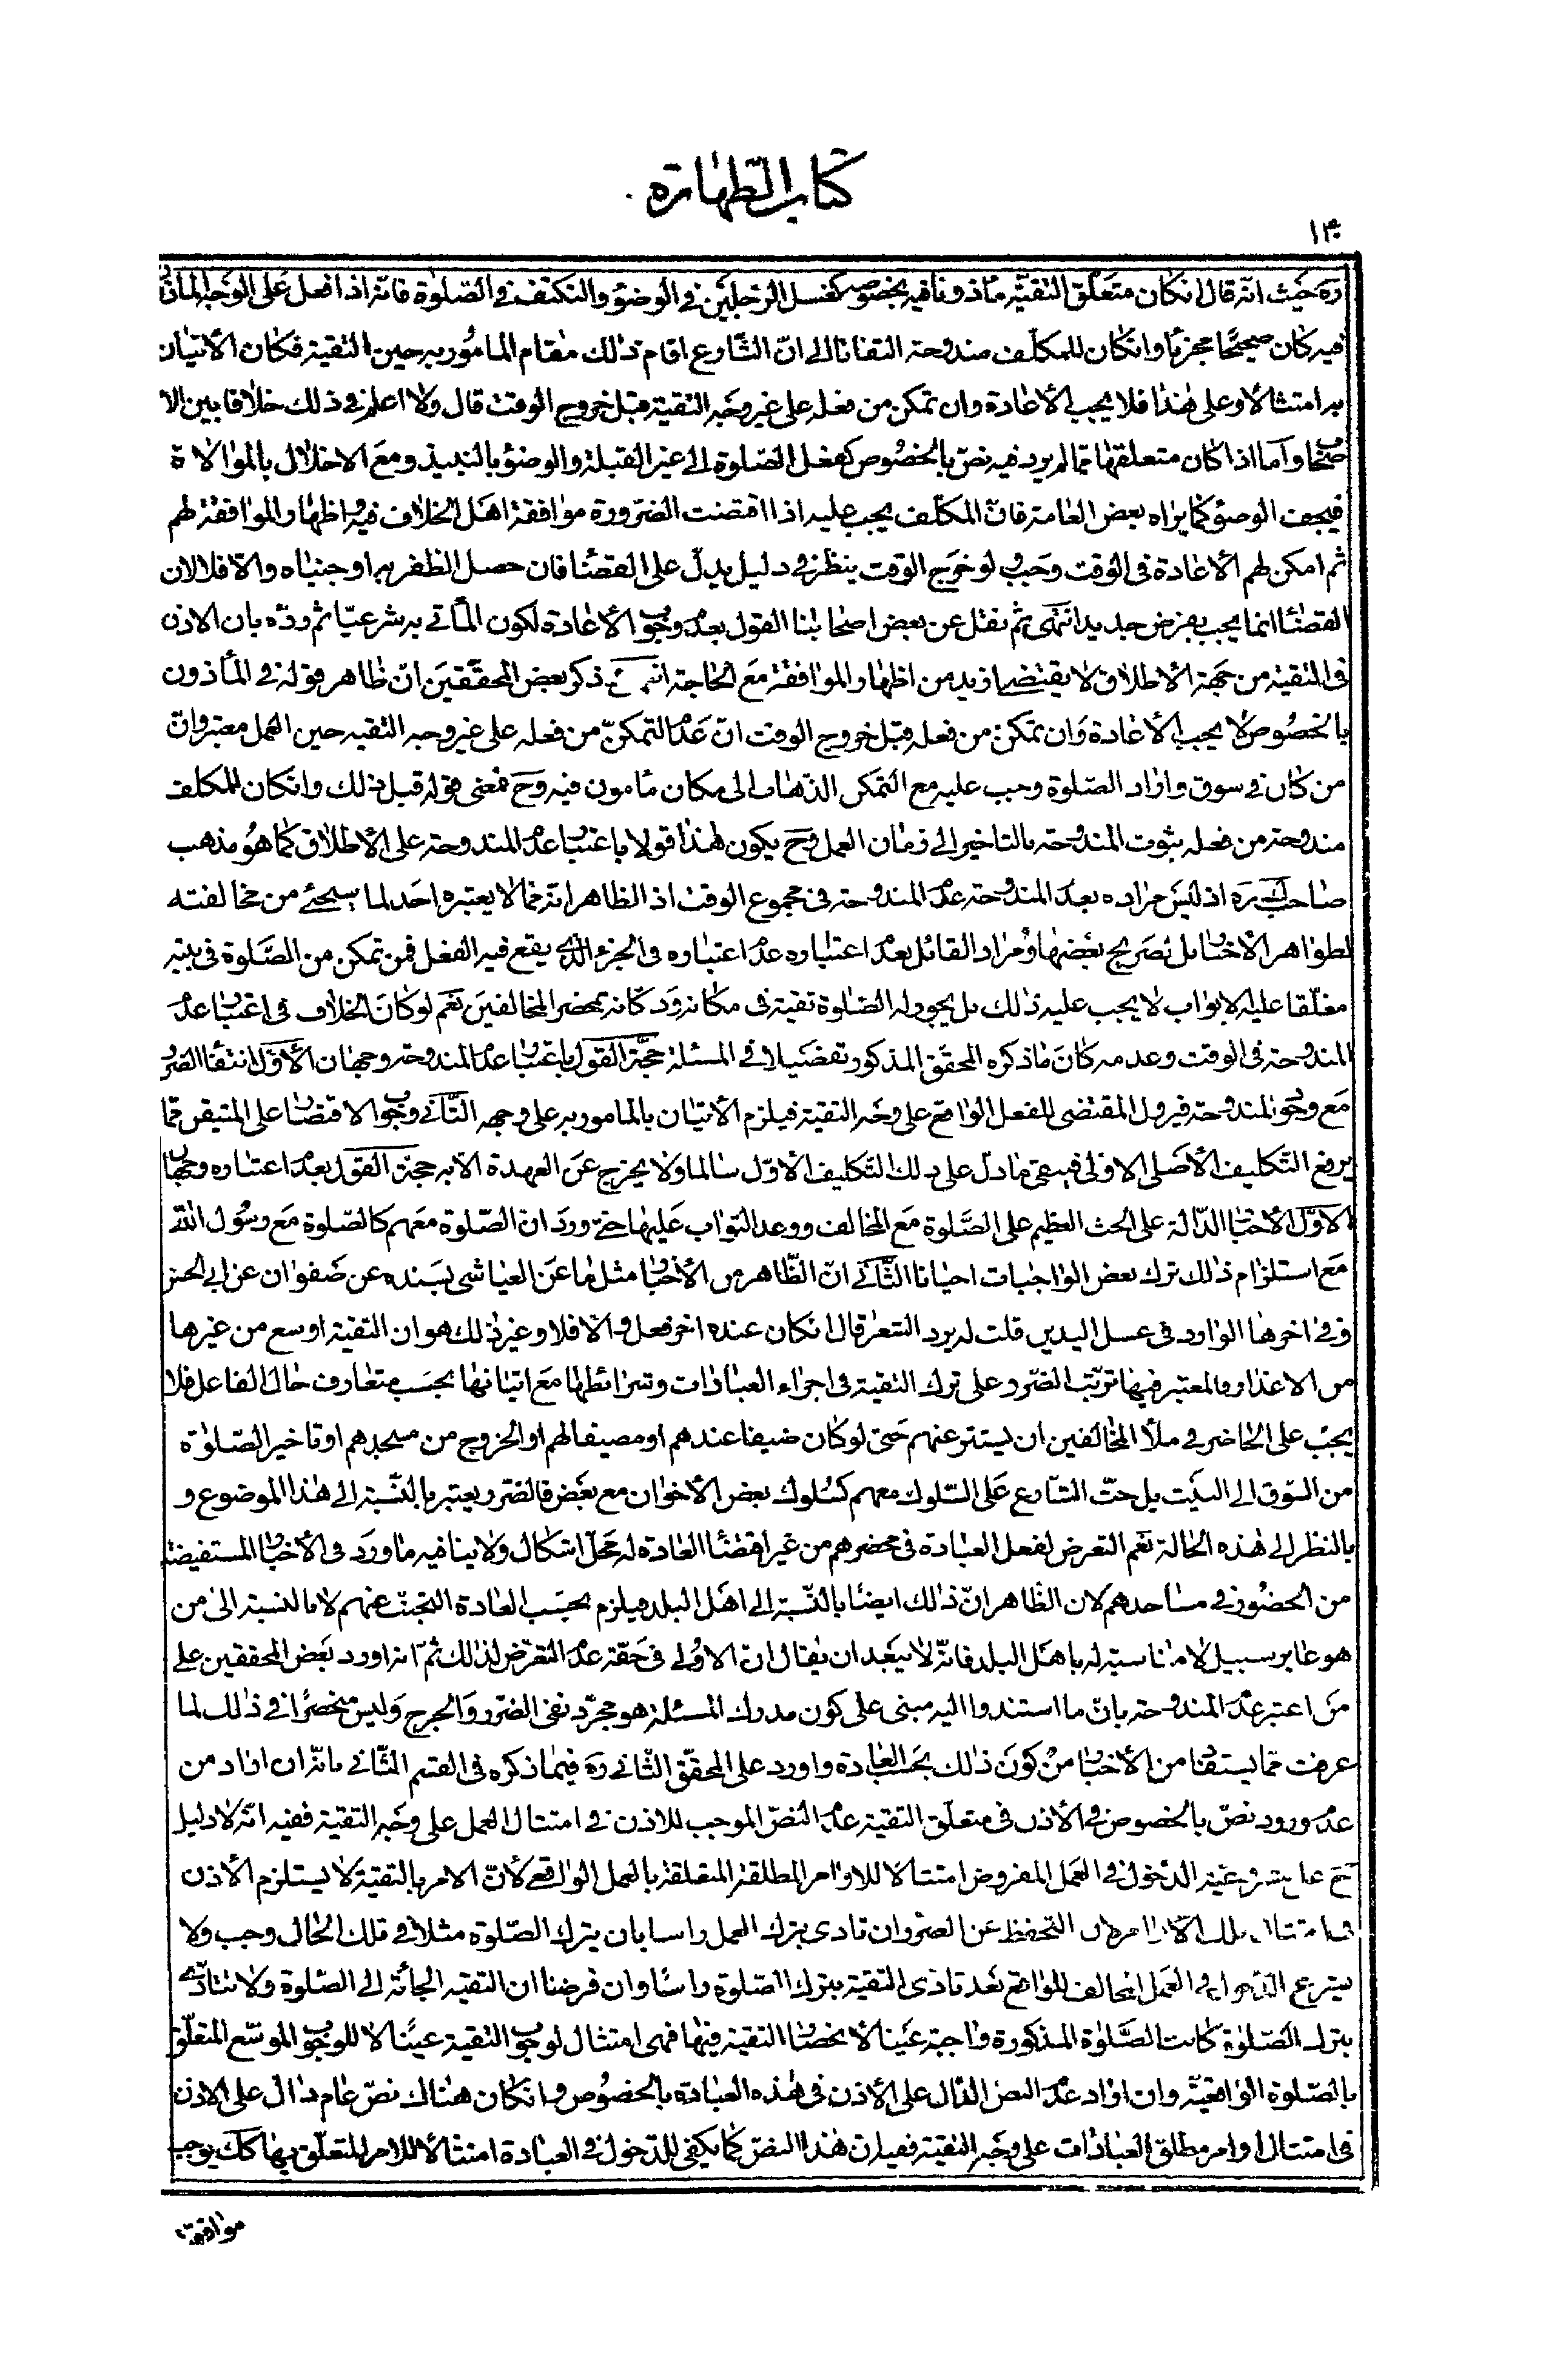 كتاب الطهارة
١٣٠
ره حيث انه قال انكان متعلق التقية ماذونا فيه بخصوصه كغسل الرجلين في الوضوء والتكتف في الصلوة فانه اذا فعل على الوجه الماذون
فيه كان صحيحا مجزيا وانكان للمكلف مندوحة التفاتا الى ان الشارع اقام ذلك مقام المامور به حين التقية فكان الاتيان
به امتثالا وعلى هذا فلا يجب الاعادة وان تمكن من فعله على غير وجه التقية قبل خروج الوقت قال ولا اعلم في ذلك خلافا بين الا
صحاب واما اذا كان متعلقها مما لم يرد فيه نص بالخصوص كفعل الصلوة الى غير القبلة والوضوء بالنبيذ ومع الاخلال بالموالاة
فيجف الوضوء كما يراه بعض العامة فان المكلف يجب عليه اذا اقتضت الضرورة موافقة اهل الخلاف فيه واظهار الموافقة لهم
ثم امكن لهم الاعادة في الوقت وجب ولو خرج الوقت ينظر في دليل يدل على القضاء فان حصل الظفر به اوجبناه والا فلا لان
القضاء انما يجب بفرض جديد انتهى ثم نقل عن بعض اصحابنا القول بعدم وجوب الاعادة لكون الماتي به شرعيا ثم رده بان الاذن
في التقية من جهة الاطلاق لا يقتضي ازيد من اظهار الموافقة مع الحاجة انتهى ذكر بعض المحققين ان ظاهر قوله في الماذون
بالخصوص لا يجب الاعادة وان تمكن من فعله قبل خروج الوقت ان عدم التمكن من فعله على غير وجه التقيه حين العمل معتبر وان
من كان في سوق واراد الصلوة وجب عليه مع التمكن الذهاب الى مكان مامون فيه وح فمعنى قوله قبل ذلك وانكان للمكلف
مندوحة من فعله ثبوت المندوحة بالتاخير الى زمان العمل وح يكون هذا قولا باعتبار عدم المندوحة على الاطلاق كما هو مذهب
صاحب ك ره اذ ليس مراده بعدم المندوحة عدم المندوحة في مجموع الوقت اذ الظاهر انه مما لا يعتبره احد لما سيجئ من مخالفته
لظواهر الاخبار بل تصريح بعضها ومراد القائل بعدم اعتباره عدم اعتباره في الجزء الذي يقع فيه الفعل فمن تمكن من الصلوة في بيته
مغلقا عليه الابواب لا يجب عليه ذلك بل يجوز له الصلوة تقية في مكانه ودكانه بمحضر المخالفين نعم لو كان الخلاف في اعتبار عدم
المندوحة في الوقت وعدمه كان ما ذكره المحقق المذكور تفصيلا في المسئلة حجة القول باعتبار عدم المندوحة وجهان الاول انتفاء الضرر
مع وجود المندوحة فيزول المقتضى للفعل الواقع على وجه التقية فيلزم الاتيان بالمامور به على وجهه الثاني وجوب الاقتصار على المتيقن مما
يرفع التكليف الاصلى الاولى فيبقى ما دل على ذلك التكليف الاول سالما ولا يخرج عن العهدة الا به حجة القول بعدم اعتباره وجهان
الاول الاخبار الدالة على الحث العظيم على الصلوة مع المخالف ووعد الثواب عليها حتى ورد ان الصلوة معهم كالصلوة مع رسول الله
مع استلزام ذلك ترك بعض الواجبات احيانا الثاني ان الظاهر من الاخبار مثل ما عن العياشى بسنده عن صفوان عن ابي الحسن
و في اخرها الوارد في غسل اليدين قلت له يرد الشعر قال انكان عنده اخر فعل والا فلا وغير ذلك هو ان التقية اوسع من غيرها
من الاعذار والمعتبر فيها ترتب الضرر على ترك التقية في اجزاء العبادات وشرائطها مع اتيانها بحسب متعارف حال الفاعل فلا
يجب على الحاضر في ملأ المخالفين ان يستتر عنهم حتى لو كان ضيفا عندهم او مضيفا لهم او الخروج من مسجدهم او تاخير الصلوة
من السوق الى البيت بل حث الشارع على السلوك معهم كسلوك بعض الاخوان مع بعض فالضرر يعتبر بالنسبة الى هذا الموضوع و
بالنظر الى هذه الحالة نعم التعرض لفعل العبادة في محضرهم من غير اقتضاء العادة له محل اشكال ولا ينافيه ما ورد في الاخبار المستفيضة
من الحضور في مساجدهم لان الظاهر ان ذلك ايضا بالنسبة الى اهل البلد فيلزم بحسب العادة التجنب عنهم لا بالنسبة الى من
هو عابر سبيل لا مناسبة له باهل البلد فانه لا يبعد ان يقال ان الاولى في حقه عدم التعرض لذلك ثم انه اورد بعض المحققين على
من اعتبر عدم المندوحة بان ما استندوا اليه مبنى على كون مدرك المسئلة هو مجرد نفى الضرر والحرج وليس منحصرا في ذلك لما
عرفت مما يستفاد من الاخبار من كون ذلك بحسب العادة واورد على المحقق الثاني ره فيما ذكره في القسم الثاني بانه ان اراد من
عدم ورود نص بالخصوص في الاذن في متعلق التقية عدم النص الموجب للاذن في امتثال العمل على وجه التقية ففيه انه لا دليل
ح على مشروعية الدخول في العمل المفروض امتثالا للاوامر المطلقة المتعلقة بالعمل الواقعي لان الامر بالتقية لا يستلزم الاذن
في امتثال تلك الاوامر لان التحفظ عن الضرر ان تادى بترك العمل راسا بان يترك الصلوة مثلا في تلك الحال وجب ولا
يشرع الدخول في العمل المخالف للواقع بعد تادى التقية بترك الصلوة راسا وان فرضنا ان التقية الجأته الى الصلوة ولا تتادى
بترك الصلوة كانت الصلوة المذكورة واجبة عينا لانحصار التقية فيها فهى امتثال لوجوب التقية عينا لا للوجوب الموسع المتعلق
بالصلوة الواقعية وان اراد عدم النص الدال على الاذن في هذه العبادة بالخصوص وانكان هناك نص عام دال على الاذن
في امتثال اوامر مطلق العبادات على وجه التقية ففيه ان هذا النص كما يكفى للدخول في العبادة امتثالا للامر المتعلق بها كك يوجب
موافقته